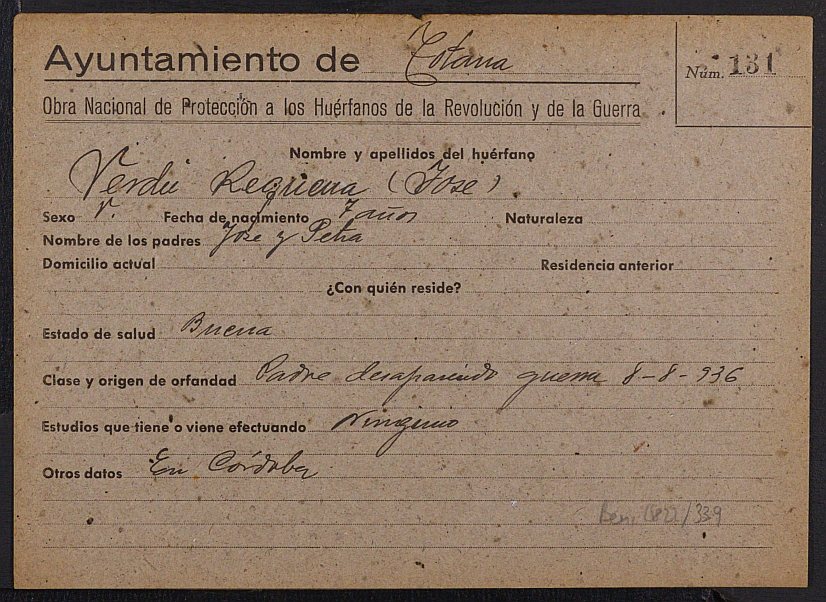 Ayuntamiento de Totana
Núm. 131
Obra Nacional de Protección a los Huérfanos de la Revolución y de la Guerra
Nombre y apellidos del huérfano
Verdú Requena (Jose)
Sexo V. Fecha de nacimiento 7 años Naturaleza
Nombre de los padres Jose y Petra
Domicilio actual Residencia anterior
¿Con quién reside?
Estado de salud Buena
Clase y origen de orfandad Padre desaparecido guerra 8-8-936
Estudios que tiene o viene efectuando Ninguno
Otros datos En Córdoba
/339